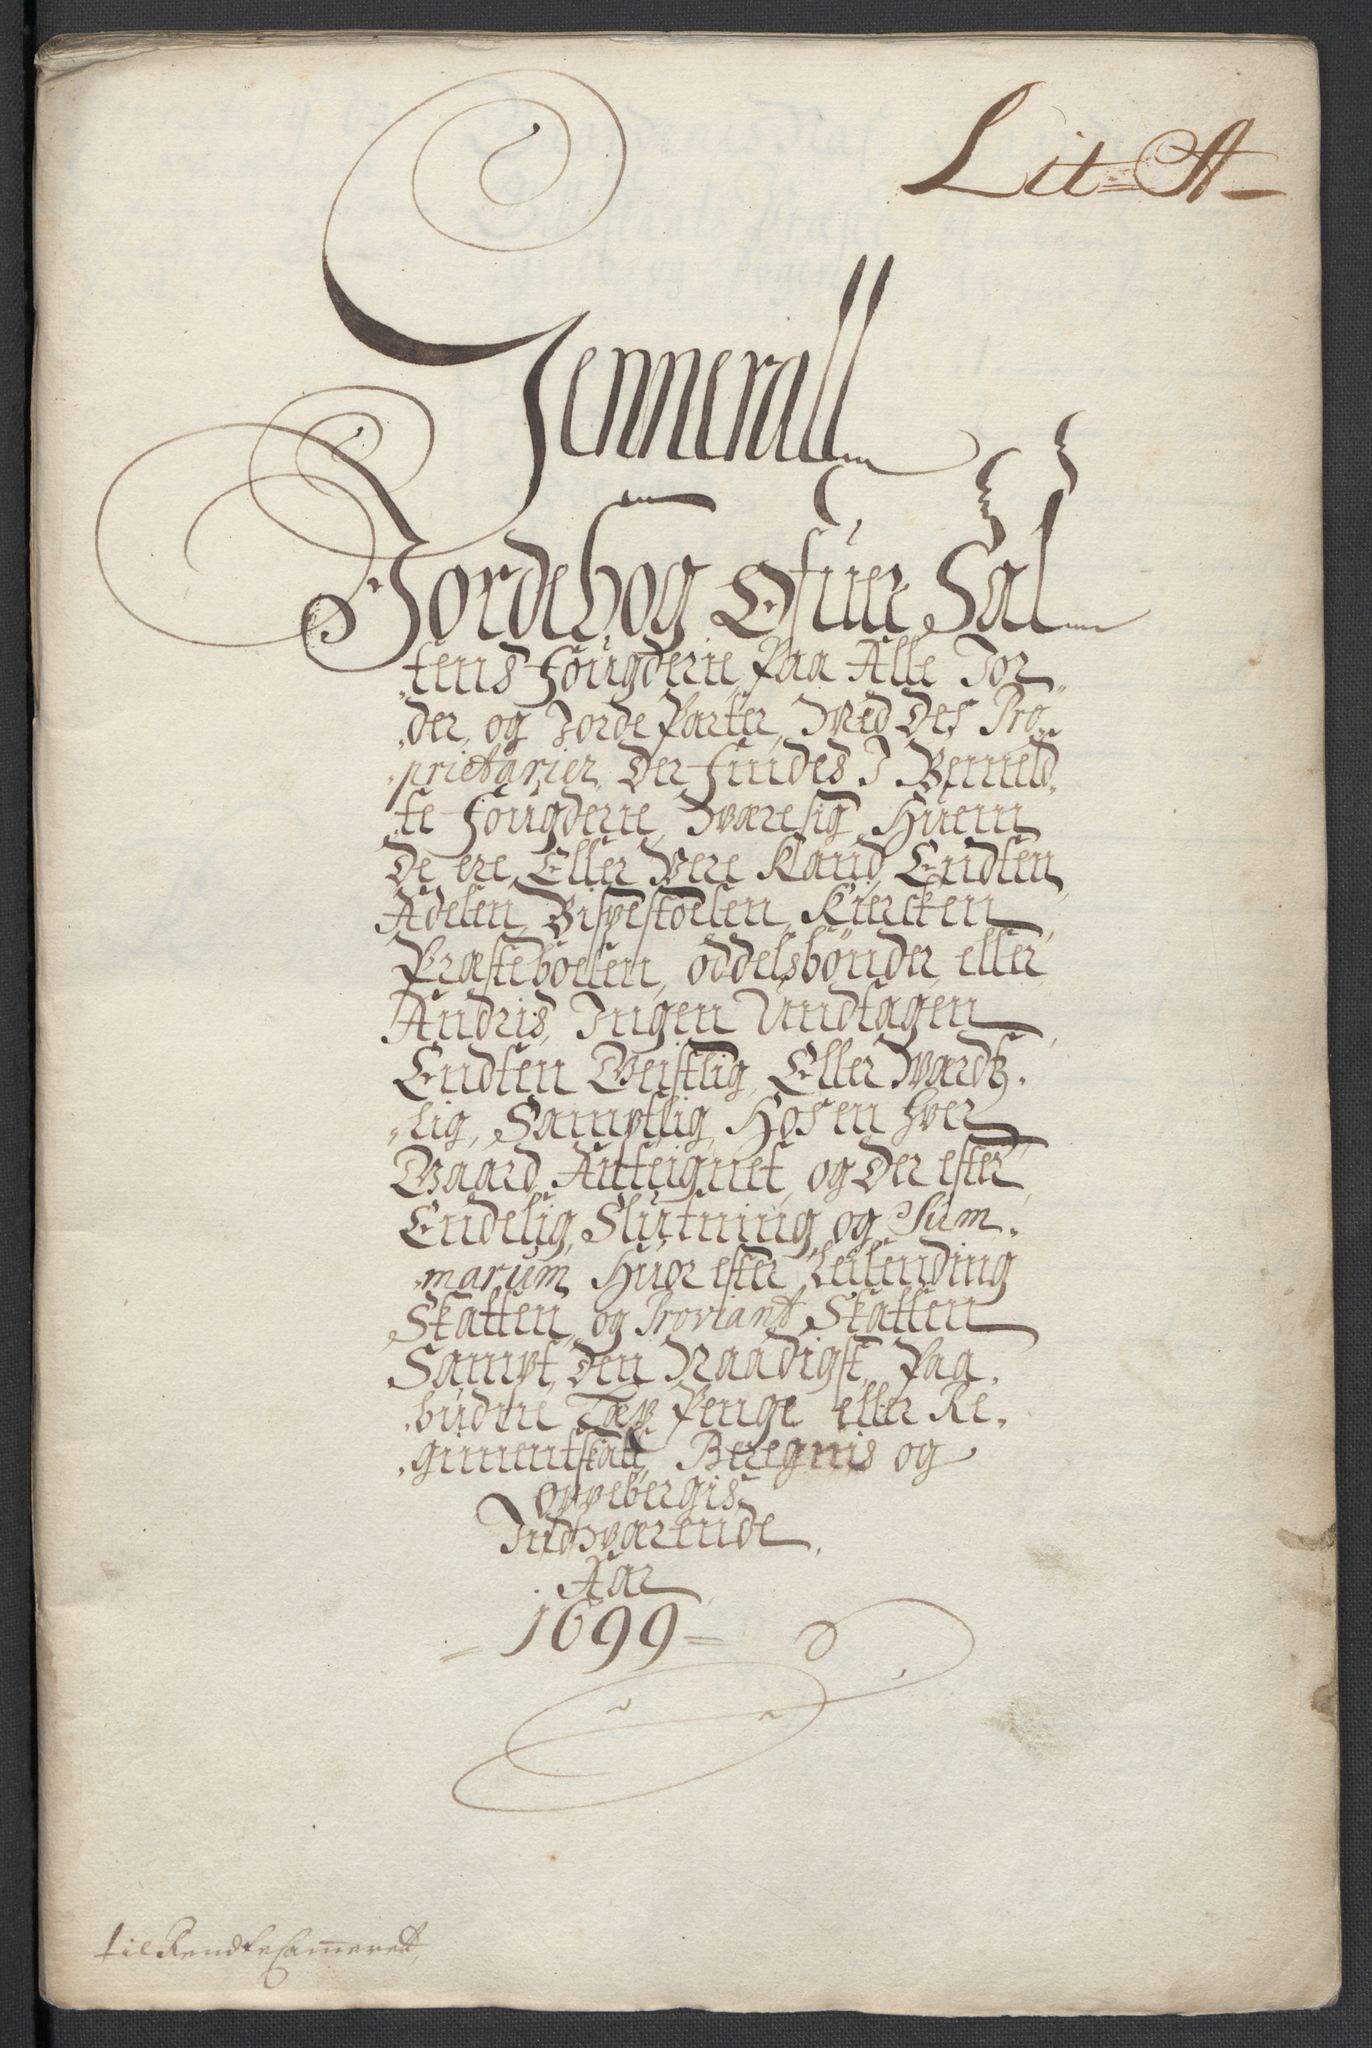 Lit: A
Gennerall
Jordebog Ofuer Sal
tens fougderie Paa Alle Jor
der, og Jorde Parter, Med Des Pro
prietarier, Der findes I Bemeld
te fougderie, Hværesig, Huem
De ere, Eller Vere Kand, Endten
Adelen, Bispestoelen, Kiercken
Præsteboelen, oddelsbønder, eller
Andris, Ingen Undtagen
Endten Geistlig, Eller Værdtz
lig, Samptlig, Hosen hver
Gaard Anteignet, og Der efter
Endelig Slutning og Sum
marum Huor efter Leilending
Skatten, og Proviant Skatten
Sampt, Den Naadigst, Paa
budne Tæp Penge eller Re
gimentskatt, Beregnis og
oppebergis
Indværende
Aar
1699
til RendteCammeret,